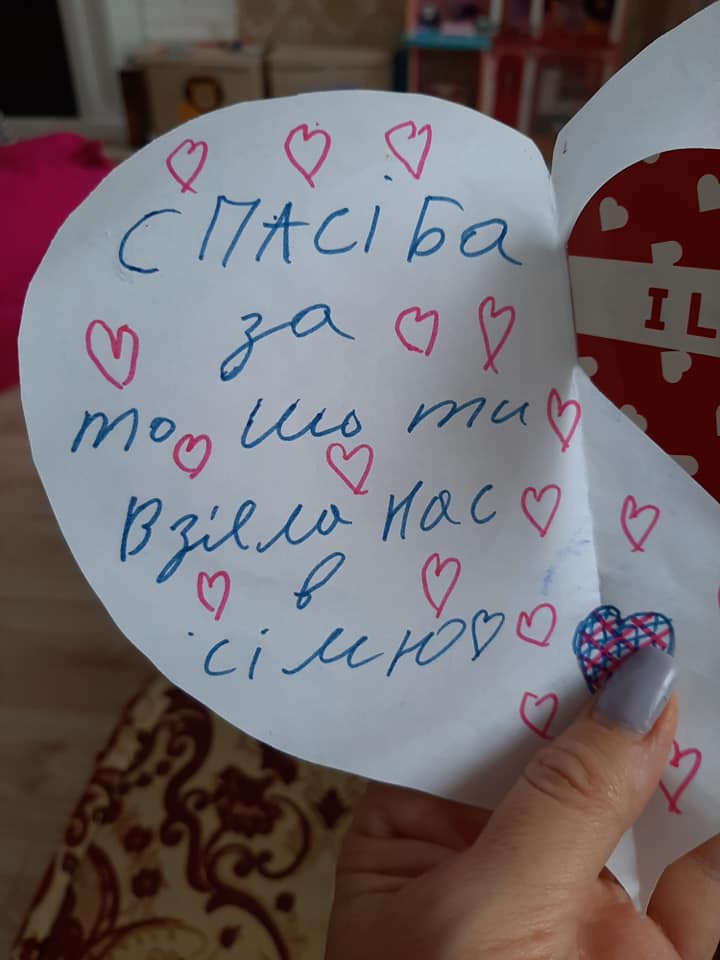 СПАСІБА
за
то шо ти
взяла нас
в
сімю
I L